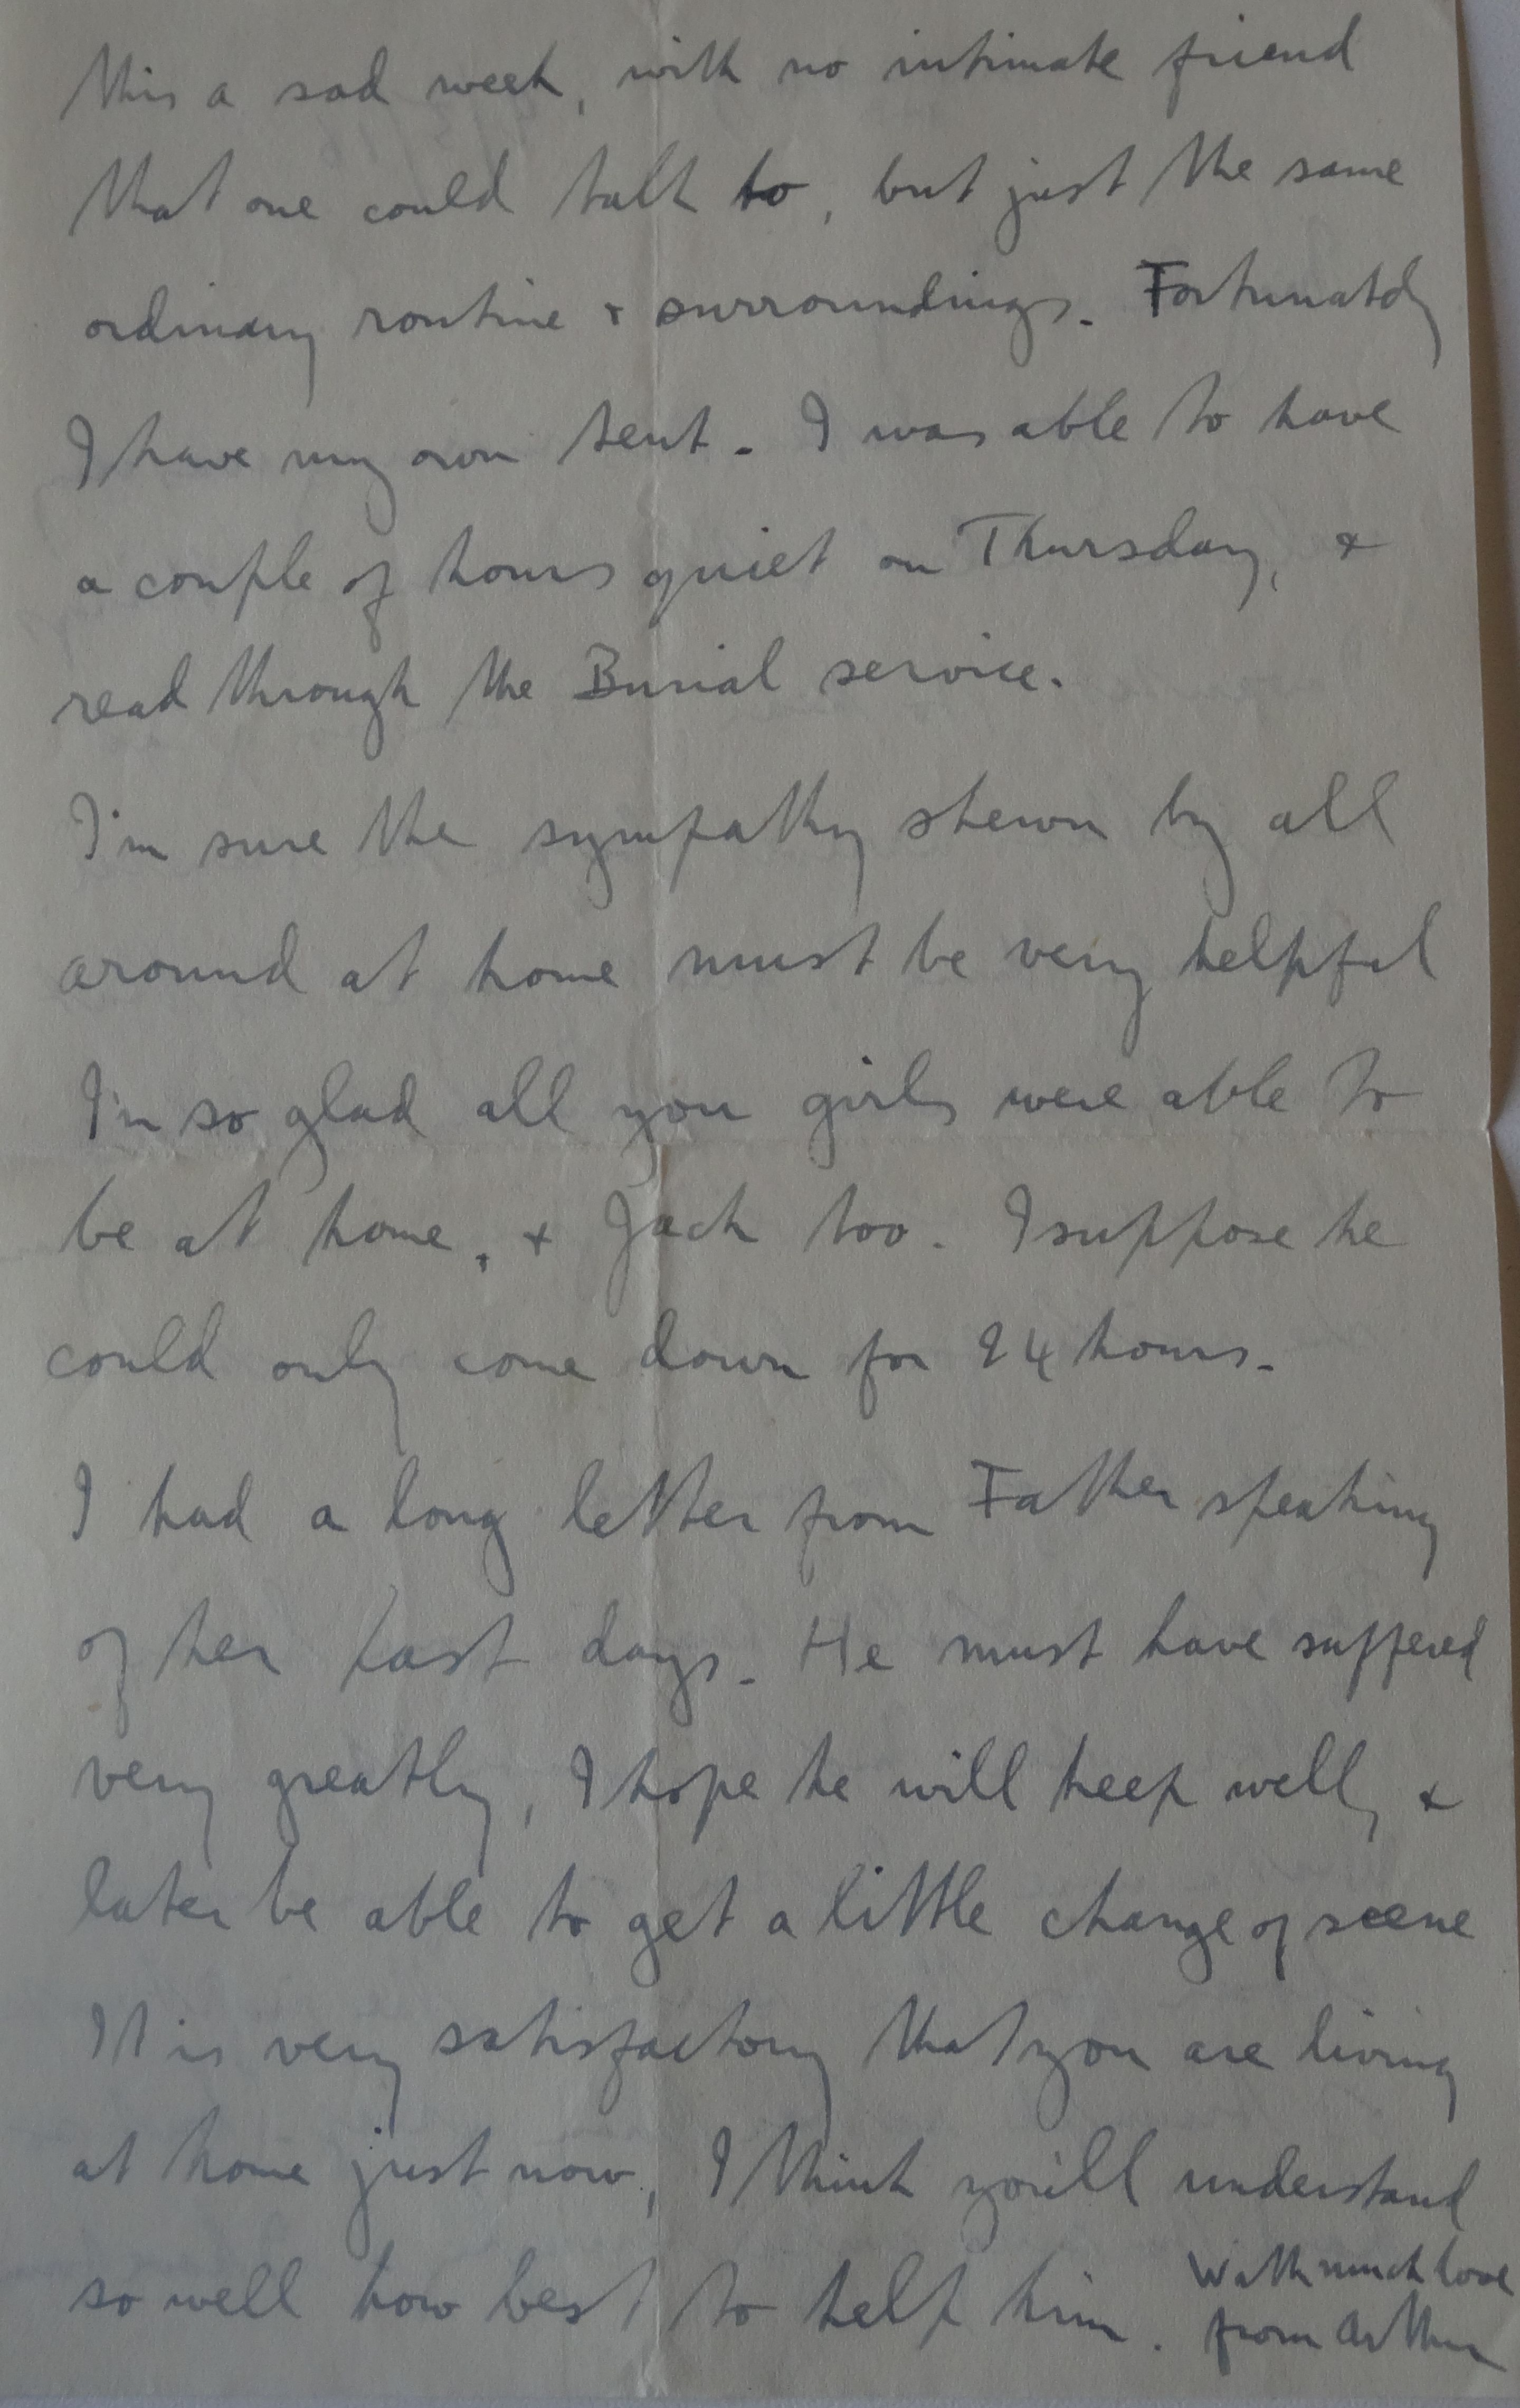 this a sad week, with no intimate friend
that one could talk to, but just the same
ordinary routine & surroundings. Fortunately
I have my own tent. I was able to have
a couple of hours quiet on Thursday, &
read through the Burial service.
I'm sure the sympathy shewn by all
around at home must be very helpful
I'm so glad all you girls were able to
be at home, & Jack too. I suppose he
could only come down for 24 hours.
I had a long letter from Father speaking
of her last days. He must have suffered
very greatly, I hope he will keep well, &
later be able to get a little change of scene
It is very satisfactory that you are living
at home just now, I think you'll understand
so well how best to help him.
With much love
from Arthur